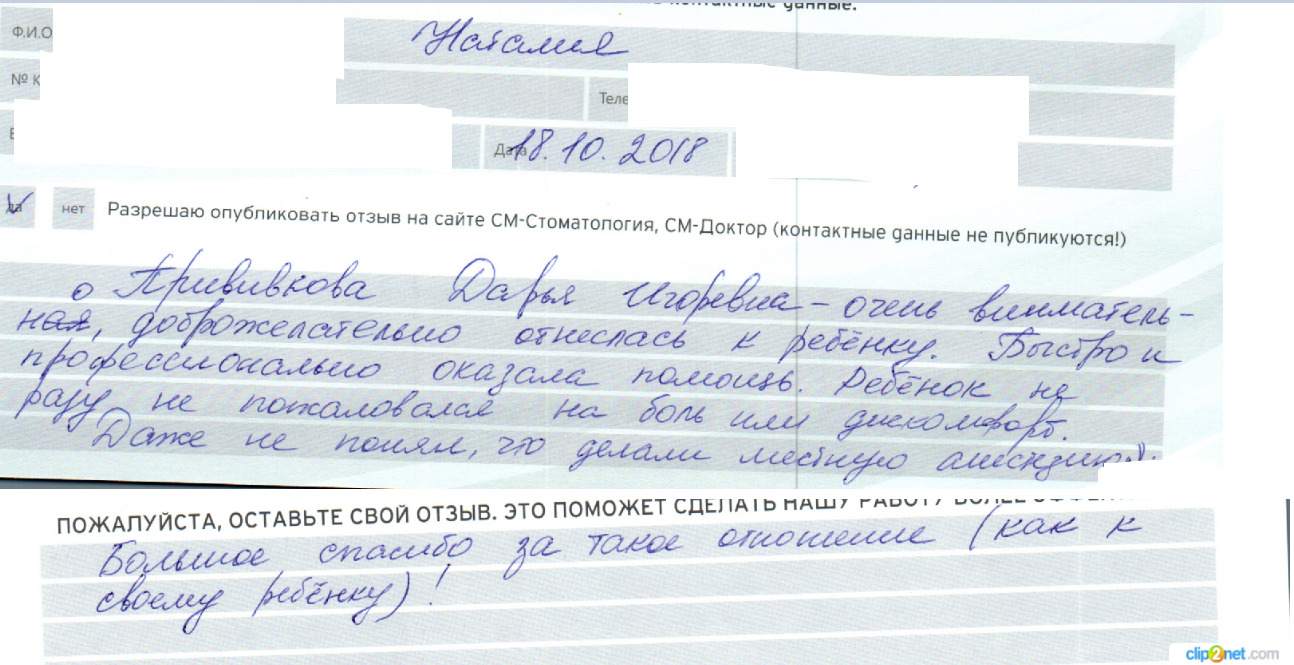 контактные данные.
Ф.И.О
Наталия
№ К
Теле
Дата 18.10.2018
да нет Разрешаю опубликовать отзыв на сайте СМ-Стоматология, СМ-Доктор (контактные данные не публикуются!)
о Прививкова Дарья Игоревна – очень вниматель-
ная, доброжелательно отнеслась к ребёнку. Быстро и
профессионально оказала помощь. Ребёнок не
разу не пожаловался на боль или дискомфорт.
Даже не понял, что делали местную анестезию
ПОЖАЛУЙСТА, ОСТАВЬТЕ СВОЙ ОТЗЫВ. ЭТО ПОМОЖЕТ СДЕЛАТЬ НАШУ РАБОТУ БОЛЕЕ
Большое спасибо за такое отношение (как к
своему ребёнку)!
clip2net.com